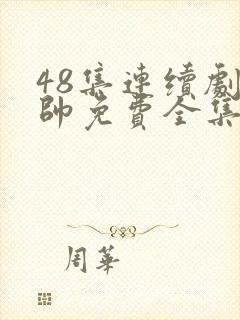 48集連續劇
帥免費全集
周華